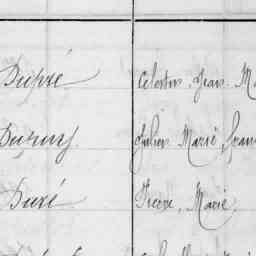 Dupré Célestin, Jean M
Duruy Julien Marie fran
Duré Pierre, Marie